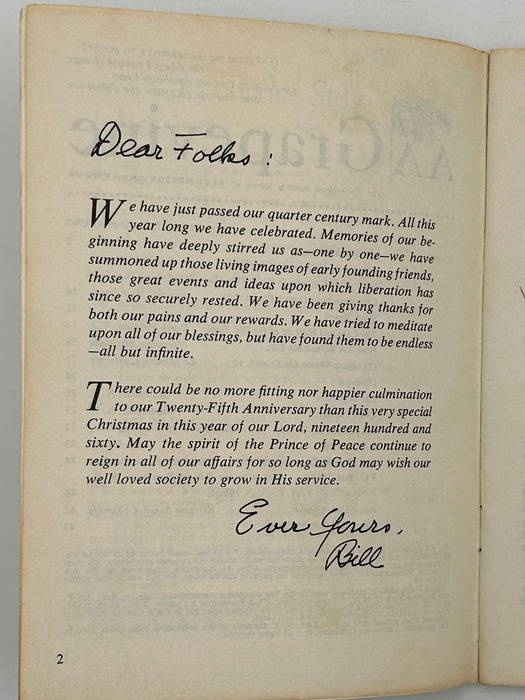 Dear Folks:
We have just passed our quarter century mark. All this
year long we have celebrated. Memories of our be-
ginning have deeply stirred us as—one by one—we have
summoned up those living images of early founding friends,
those great events and ideas upon which liberation has
since so securely rested. We have been giving thanks for
both our pains and our rewards. We have tried to meditate
upon all of our blessings, but have found them to be endless
—all but infinite.
There could be no more fitting nor happier culmination
to our Twenty-Fifth Anniversary than this very special
Christmas in this year of our Lord, nineteen hundred and
sixty. May the spirit of the Prince of Peace continue to
reign in all of our affairs for so long as God may wish our
well loved society to grow in His service.
Ever Yours,
Bill
2